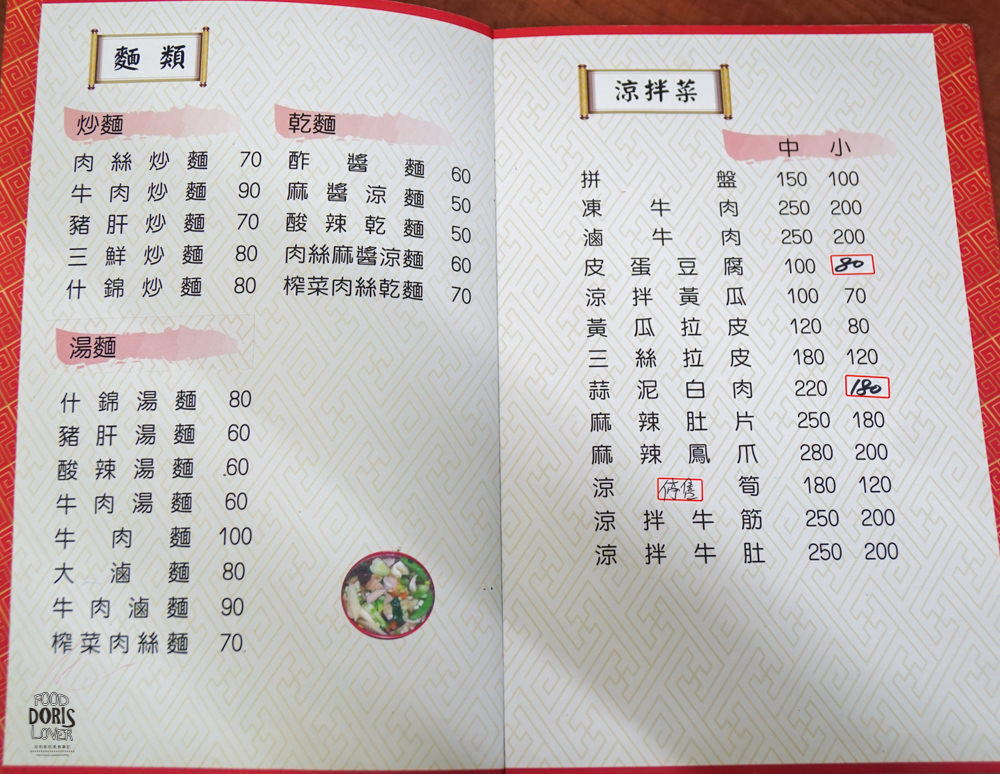 麵類
炒麵
肉絲炒麵 70
牛肉炒麵 90
豬肝炒麵 70
三鮮炒麵 80
什錦炒麵 80
乾麵
酢醬麵 60
麻醬涼麵 50
酸辣乾麵 50
肉絲麻醬涼麵 60
榨菜肉絲乾麵 70
湯麵
什錦湯麵 80
豬肝湯麵 60
酸辣湯麵 60
牛肉湯麵 60
牛肉麵 100
大滷麵 80
牛肉滷麵 90
榨菜肉絲麵 70
FOOD
DORIS
LOVER
涼拌菜
中 小
拼盤 150 100
凍牛肉 250 200
滷牛肉 250 200
皮蛋豆腐 100 80
涼拌黃瓜 100 70
黃瓜拉皮 120 80
三絲拉皮 180 120
蒜泥白肉 220 180
麻辣肚片 250 180
麻辣鳳爪 280 200
涼 停售 筍 180 120
涼拌牛筋 250 200
涼拌牛肚 250 200